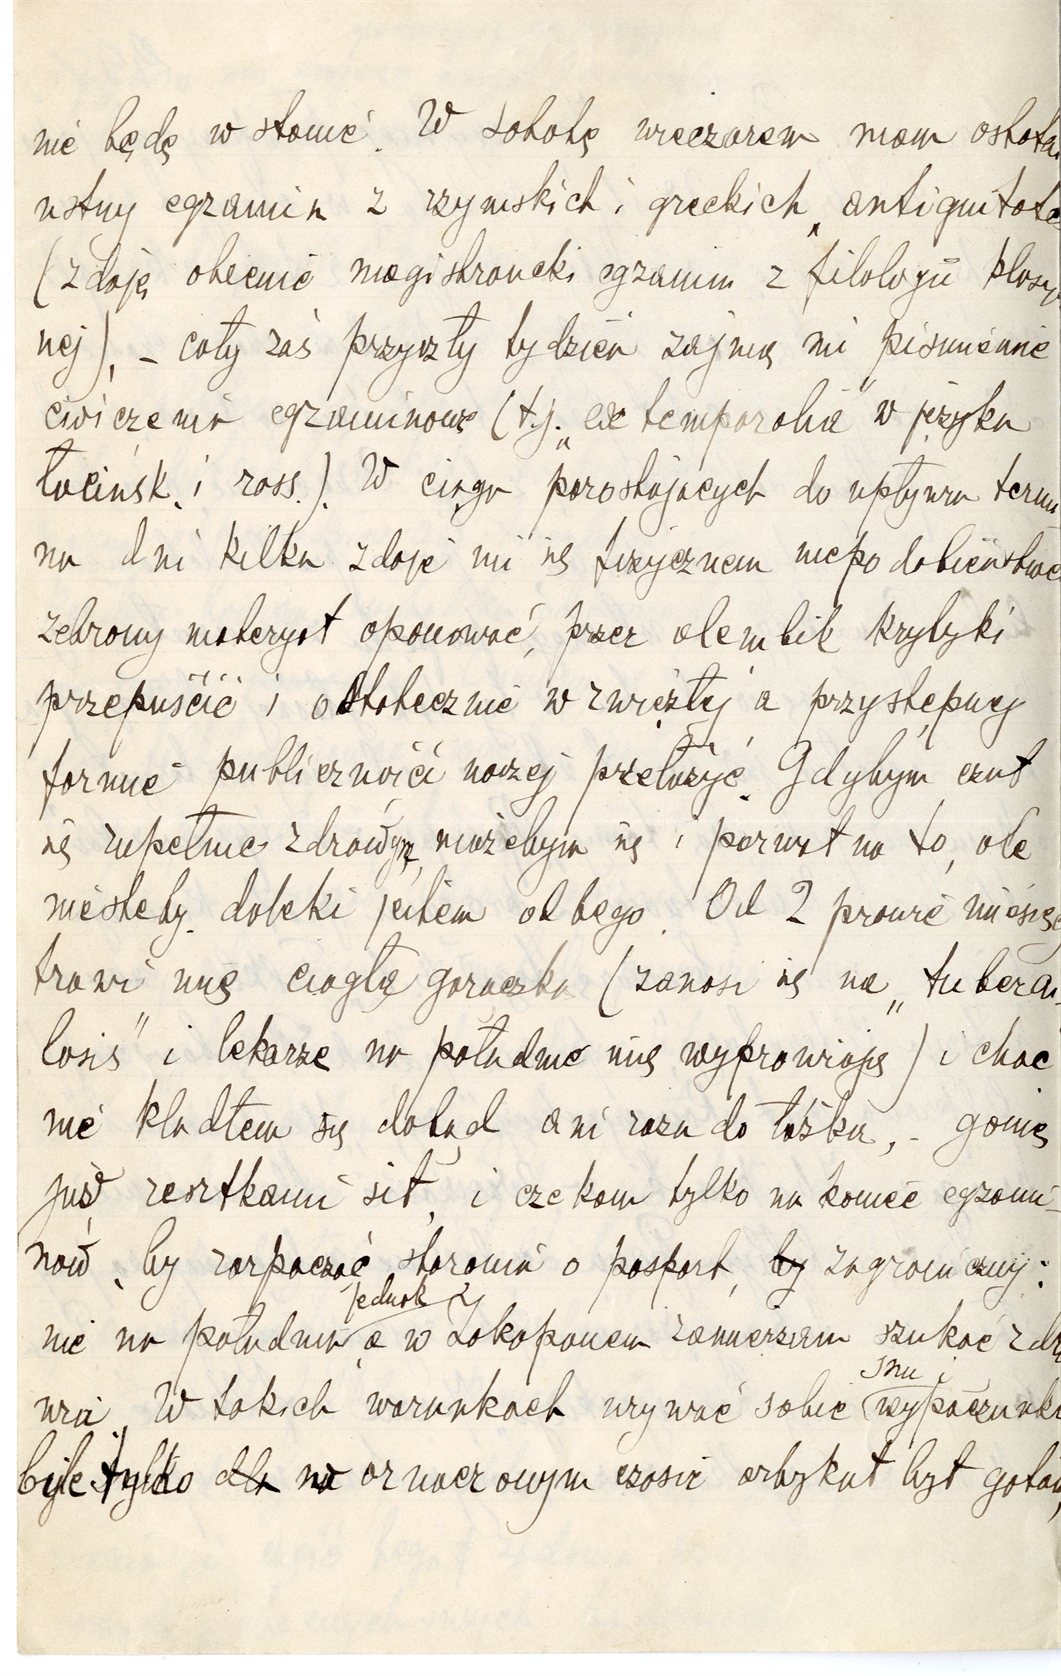 nie będę w stanie. W sobotę wieczorem mam ostatni
ustny egzamin z rzymskich i greckich „antiquitate
(zdaję obecnie magistrancki egzamin z filologii klasy
nej), – cały zaś przyszły tydzień zajmą mi piśmienne
ćwiczenia egzaminowe (t.j. „ex temporalia" w języku
łacińsk. i ross.). W ciągu pozostających do upływu termi
nu dni kilku zdaje mi się fizycznem niepodobieństwe
zebrany materyał opanować, przez alembik krytyki
przepuścić i ostatecznie w zwięzłej a przystępnej
formie publiczności naszej przełożyć. Gdybym czuł
się zupełnie zdrowym, możebym się i porwał na to, ale
niestety daleki jestem od tego. Od 2 prawie miesięc
trawi mię ciągła gorączka (zanosi się na „tubercu-
losis" i lekarze na południe mię wyprawiają) i choć
nie kładłem się dotąd ani razu do łóżka, – gonię
już resztkami sił, i czekam tylko na koniec egzami-
nów, by rozpocząć starania o paszport, by zagraniczny:
nie na południu jednak, a w Zakopanem zamierzam szukać zdro
wia. W takich warunkach urywać sobie snu i wypoczynku
byle tylko dla na oznaczonym czasie artykuł był gotów,